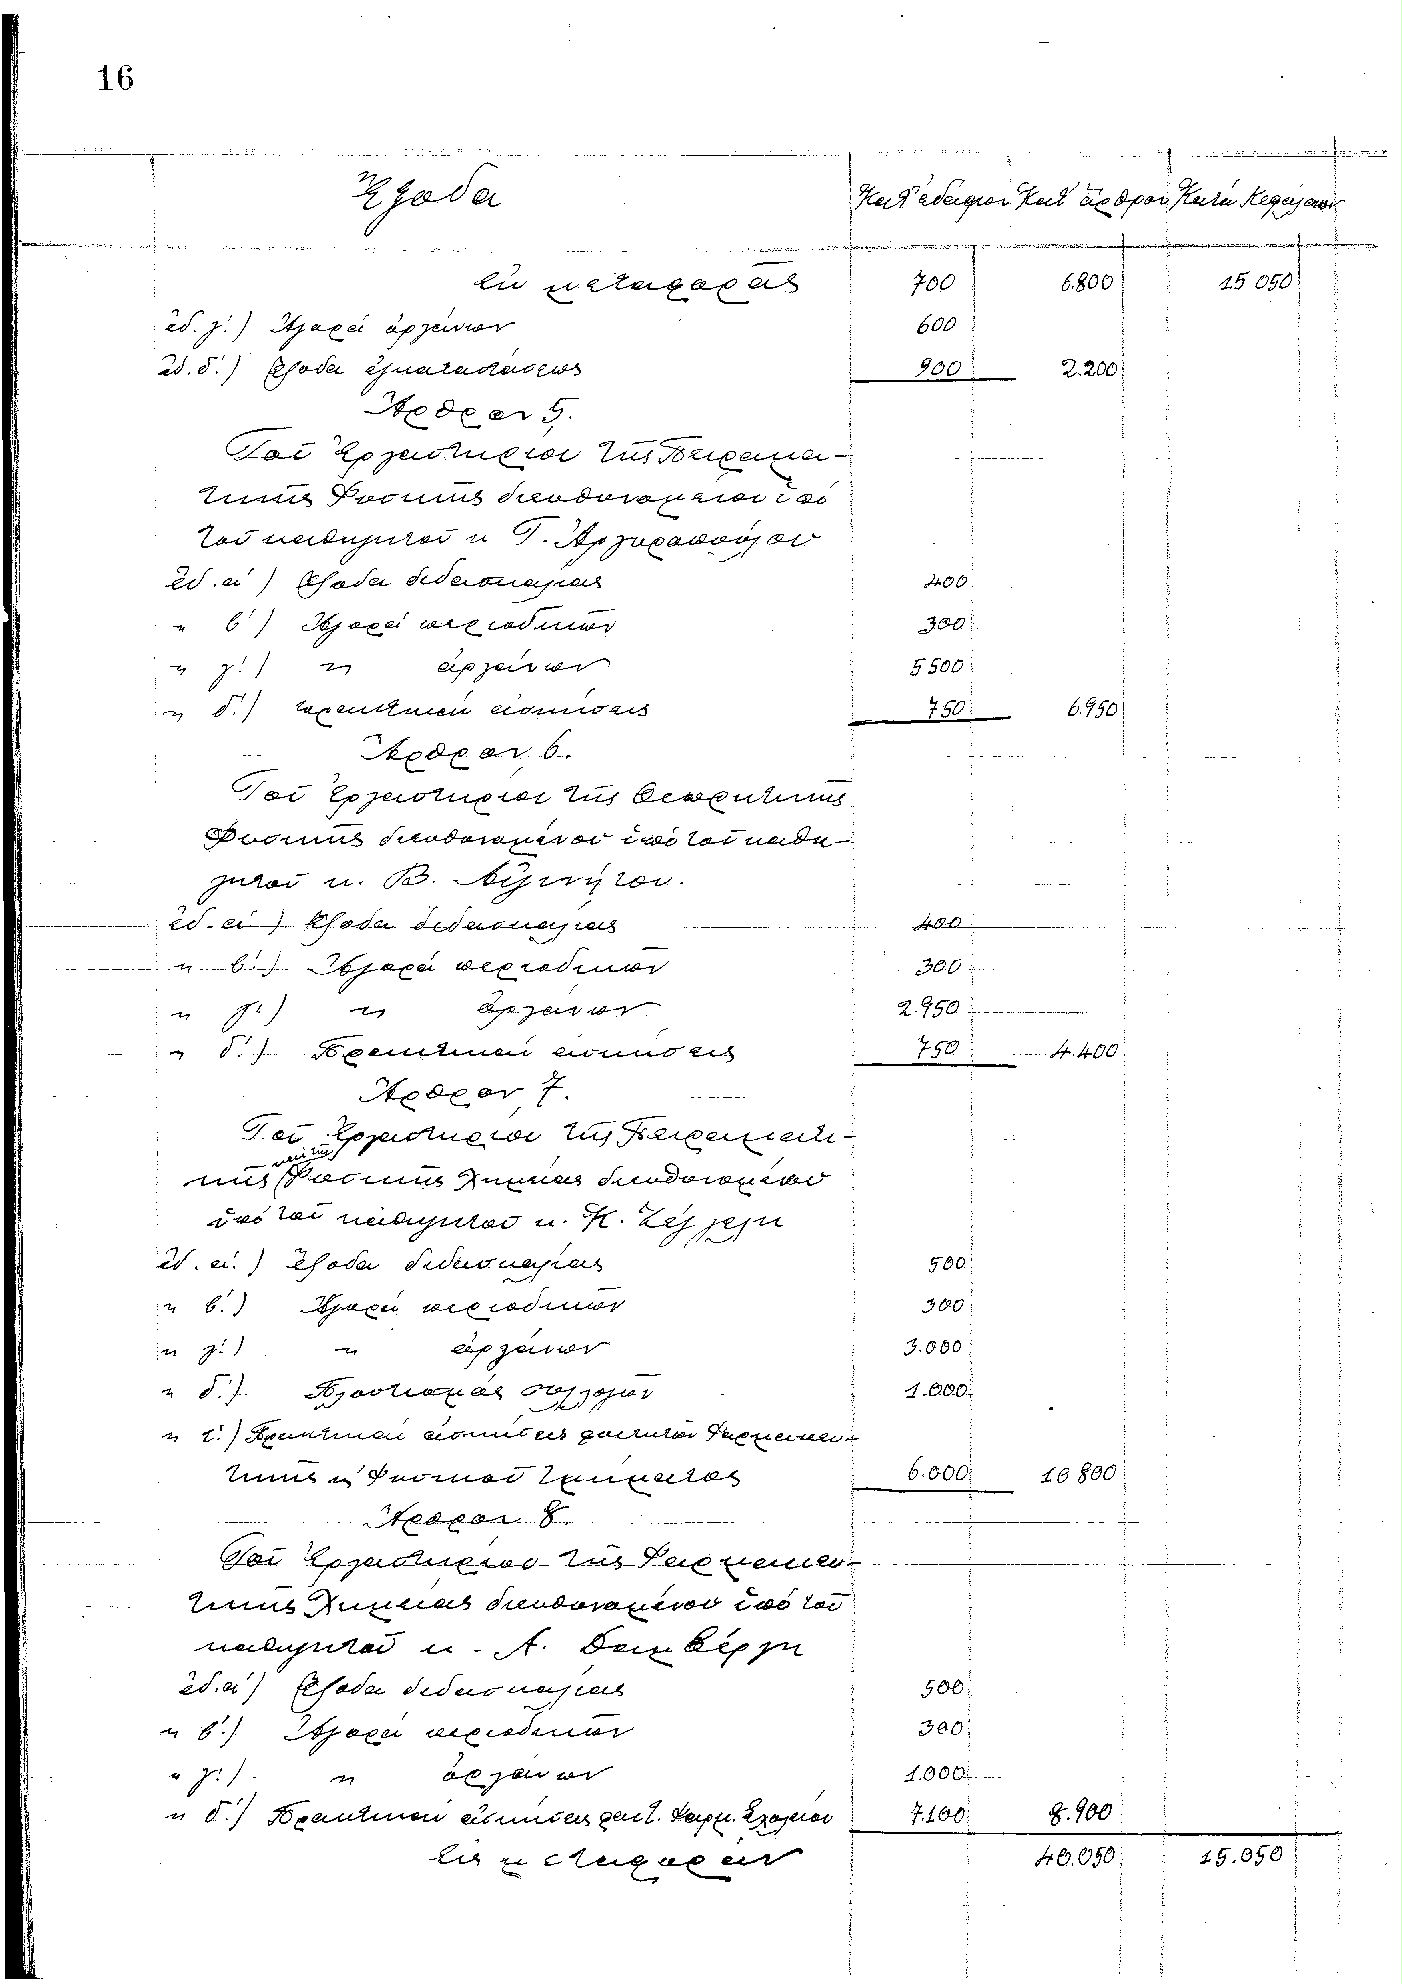 16
Ἔξοδα Κατ' ἐδάφιον Κατ' ἄρθρον Κατὰ Κεφάλαιον
Ἐκ μεταφορᾶς 700 6.800 15 050
ἐδ. γ΄.) Ἀγορὰ ὀργάνων 600
ἐδ. δ΄.) Ἔξοδα ἐγκαταστάσεως 900 2.200
Ἄρθρον 5.
Τοῦ Ἐργαστηρίου τῆς Πειραμα-
τικῆς Φυσικῆς διευθυνομένου ὑπὸ
τοῦ καθηγητοῦ κ Τ. Ἀργυροπούλου
ἐδ. α΄) Ἔξοδα διδασκαλίας 400
" β΄) Ἀγορὰ περιοδικῶν 300
" γ΄.) " ὀργάνων 5500
" δ΄.) πρακτικαὶ ἀσκήσεις 750 6.950
Ἄρθρον 6.
Τοῦ Ἐργαστηρίου τῆς Θεωρητικῆς
Φυσικῆς διευθυνομένου ὑπὸ τοῦ καθη-
γητοῦ κ. Β. Αἰγινήτου.
ἐδ. α΄) Ἔξοδα διδασκαλίας 400
" β΄.) Ἀγορὰ περιοδικῶν 300
" γ΄) " ὀργάνων 2.950
" δ΄.) Πρακτικαὶ ἀσκήσεις 750 4.400
Ἄρθρον 7.
Τοῦ Ἐργαστηρίου τῆς Πειραματι-
καὶ τῆς
κῆς Φυσικῆς Χημείας διευθυνομένου
ὑπὸ τοῦ καθηγητοῦ κ. Κ. Ζέγγελη
ἐδ. α΄.) Ἔξοδα διδασκαλίας 500
" β΄.) Ἀγορὰ περιοδικῶν 300
" γ΄.) " ὀργάνων 3.000
" δ΄.) Πλουτισμὸς συλλογῶν 1.000
" ε΄.) Πρακτικαὶ ἀσκήσεις φοιτητῶν Φαρμακευ-
τικῆς κ Φυσικοῦ τμήματος 6.000 10 800
Ἄρθρον 8.
Τοῦ Ἐργαστηρίου τῆς Φαρμακευ-
τικῆς Χημείας διευθυνομένου ὑπὸ τοῦ
καθηγητοῦ κ. Α. Δαμβέργη
ἐδ. α΄) Ἔξοδα διδασκαλίας 500
" β΄.) Ἀγορὰ περιοδικῶν 300
" γ΄.) " ὀργάνων 1.000
" δ΄.) Πρακτικαὶ ἀσκήσεις φοιτ. Φαρμ. Σχολείου 7.100 8.900
Εἰς μεταφοράν 40.050 15.050